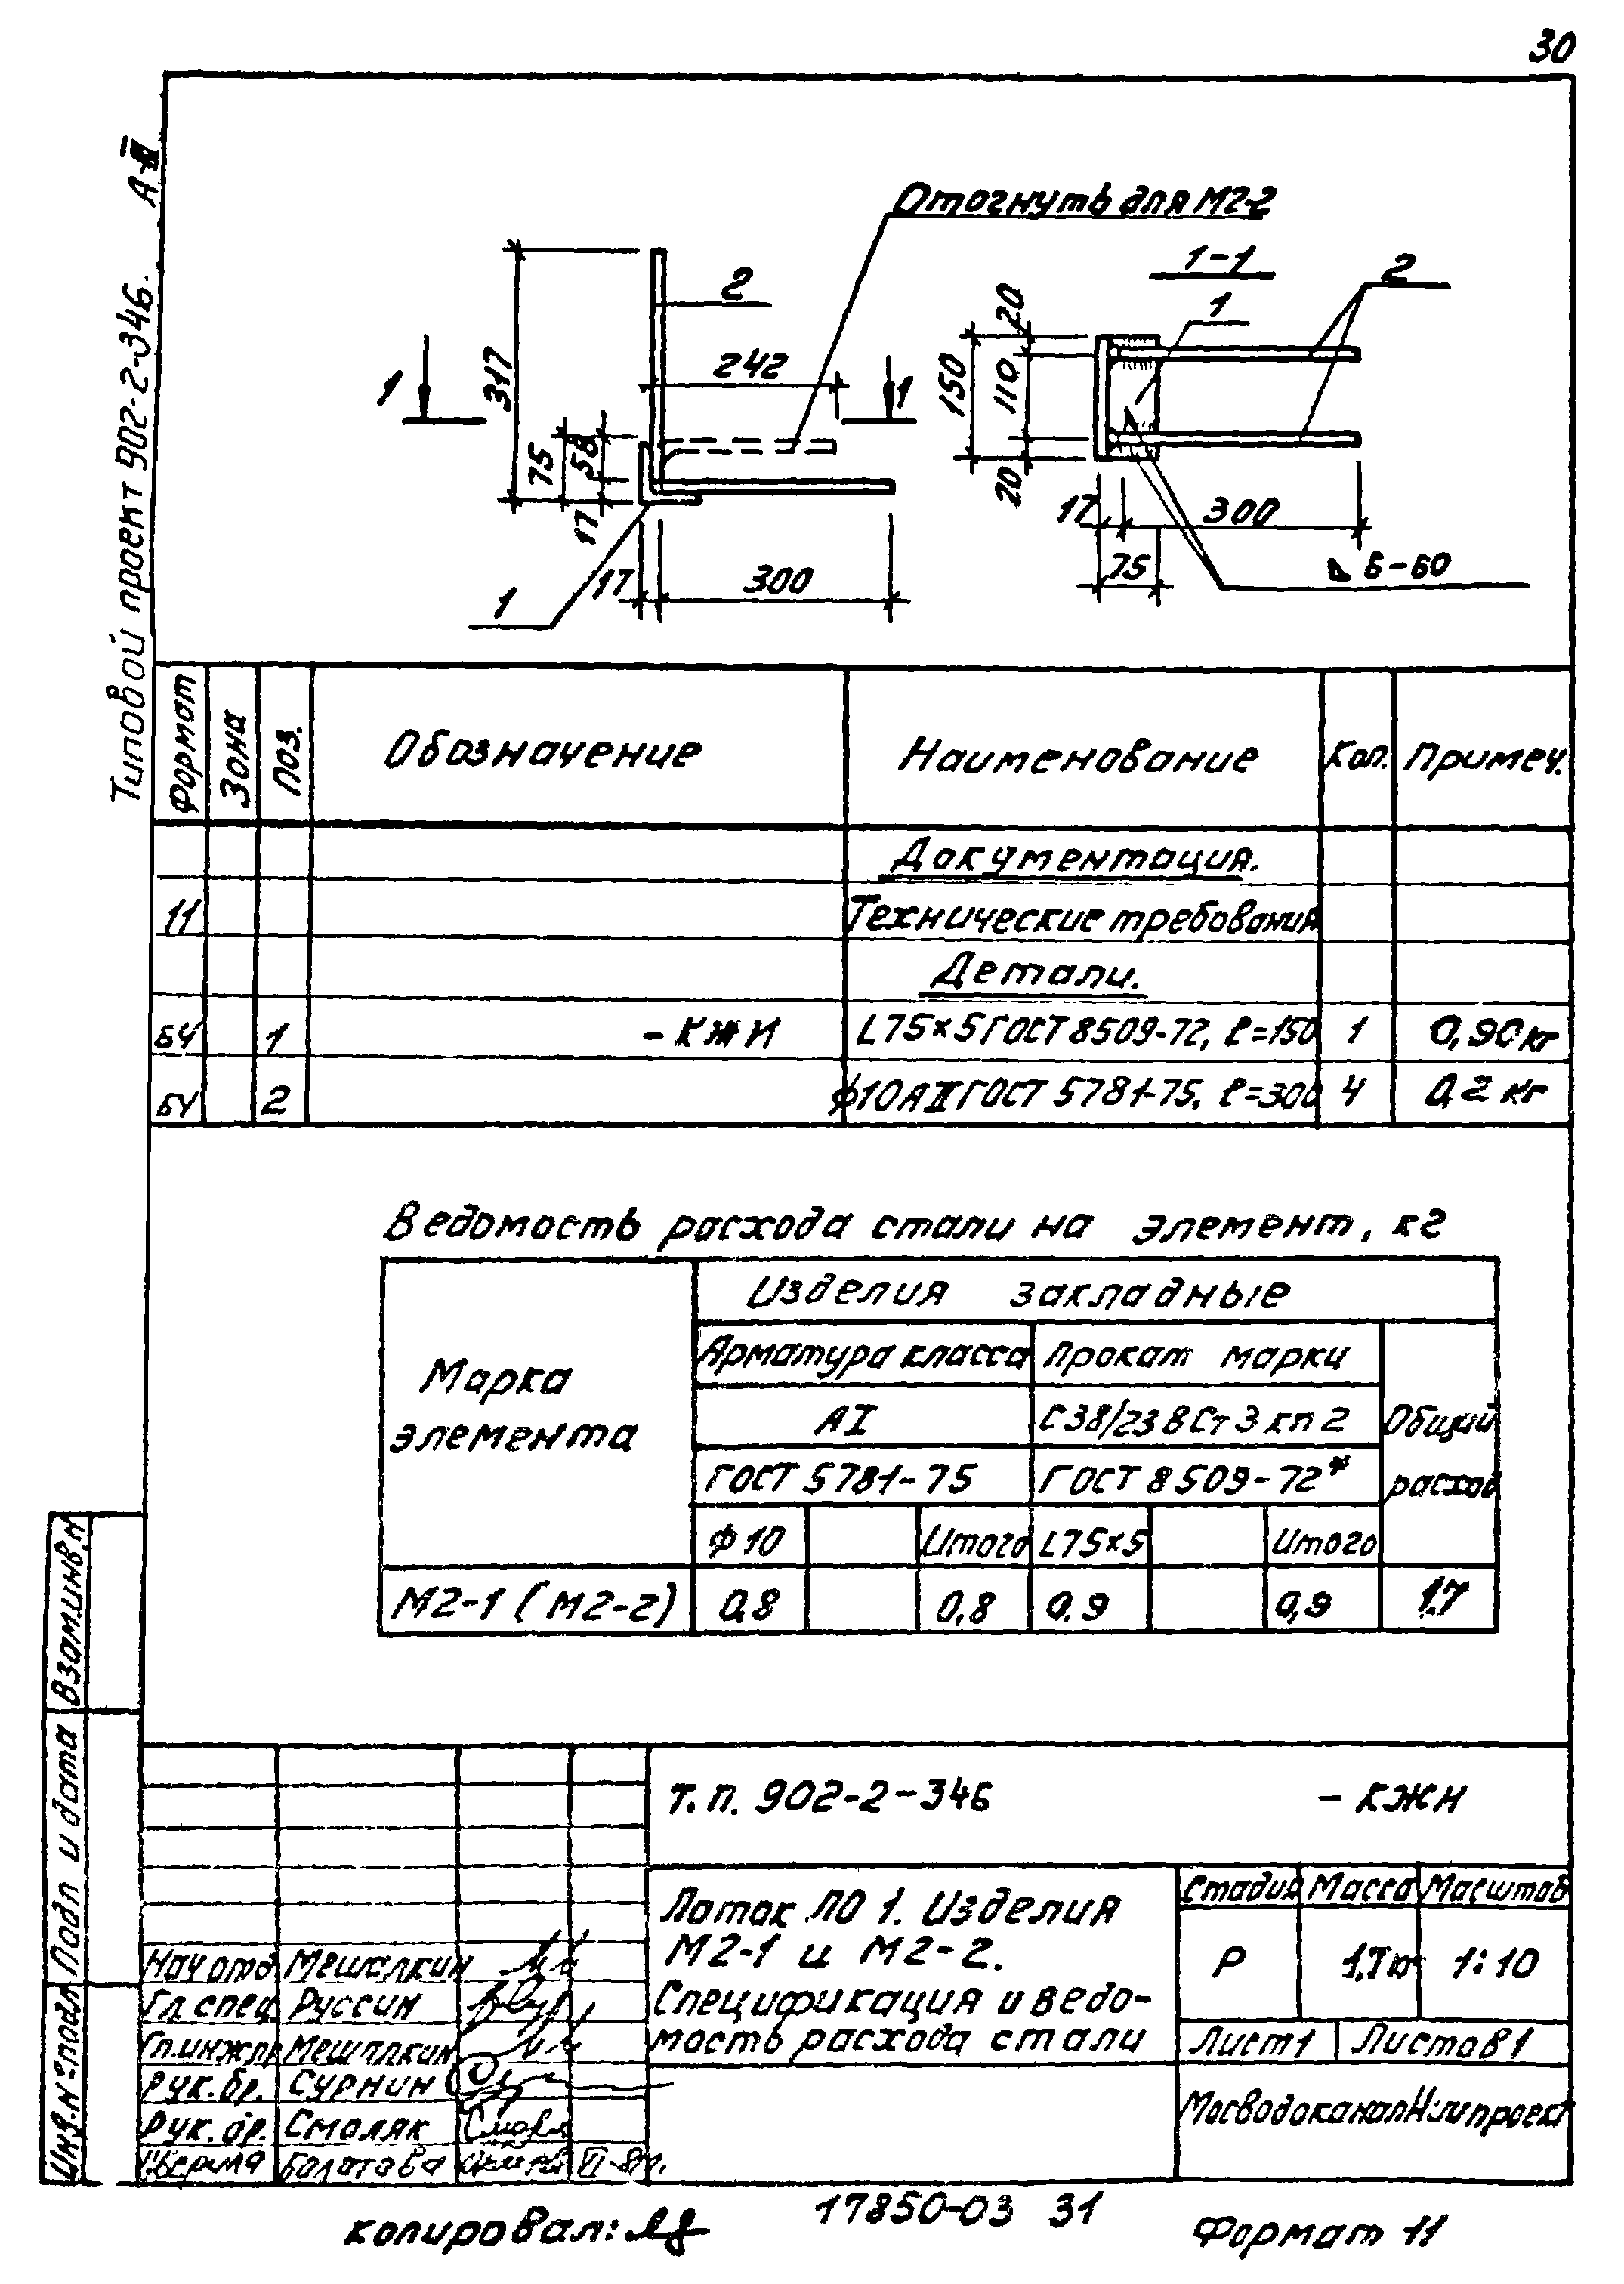 30
Типовой проект 902-2-346.
Отогнуть для М2-2
1-1
2
2
1
317
242
1
1
75
58
17
17
300
1
20
110
150
20
17
300
75
6-60
Формат Зона Поз. Обозначение Наименование Кол. Примеч.
Документация.
11 Технические требования
Детали.
БЧ 1 - КЖИ L75×5 ГОСТ 8509-72, ℓ=150 1 0,90кг
БЧ 2 ϕ10АII ГОСТ 5781-75, ℓ=300 4 0,2 кг
Ведомость расхода стали на элемент, кг
Марка элемента
Изделия закладные
Арматура класса Прокат марки
АI С38/23 ВСт 3 кп 2 Общий
ГОСТ 5781-75 ГОСТ 8509-72* расход
ϕ10 Итого L75×5 Итого
М2-1 (М2-2) 0,8 0,8 0.9 0,9 1.7
Взам.инв.н
Подп и дата
Инв.№подл
Т.П. 902-2-346 - КЖИ
Лоток ЛО 1. Изделия
М2-1 и М2-2.
Спецификация и ведо-
мость расхода стали
Стадия Масса Масштаб
Р 1:10
Лист 1 Листов 1
Нач отд Мешалкин
Гл. спец. Руссин
Гл.инж.пр Мешалкин
Рук. бр. Сурнин
Рук. бр. Смоляк
Болотова
копировал:
17850-03 31
Формат 11